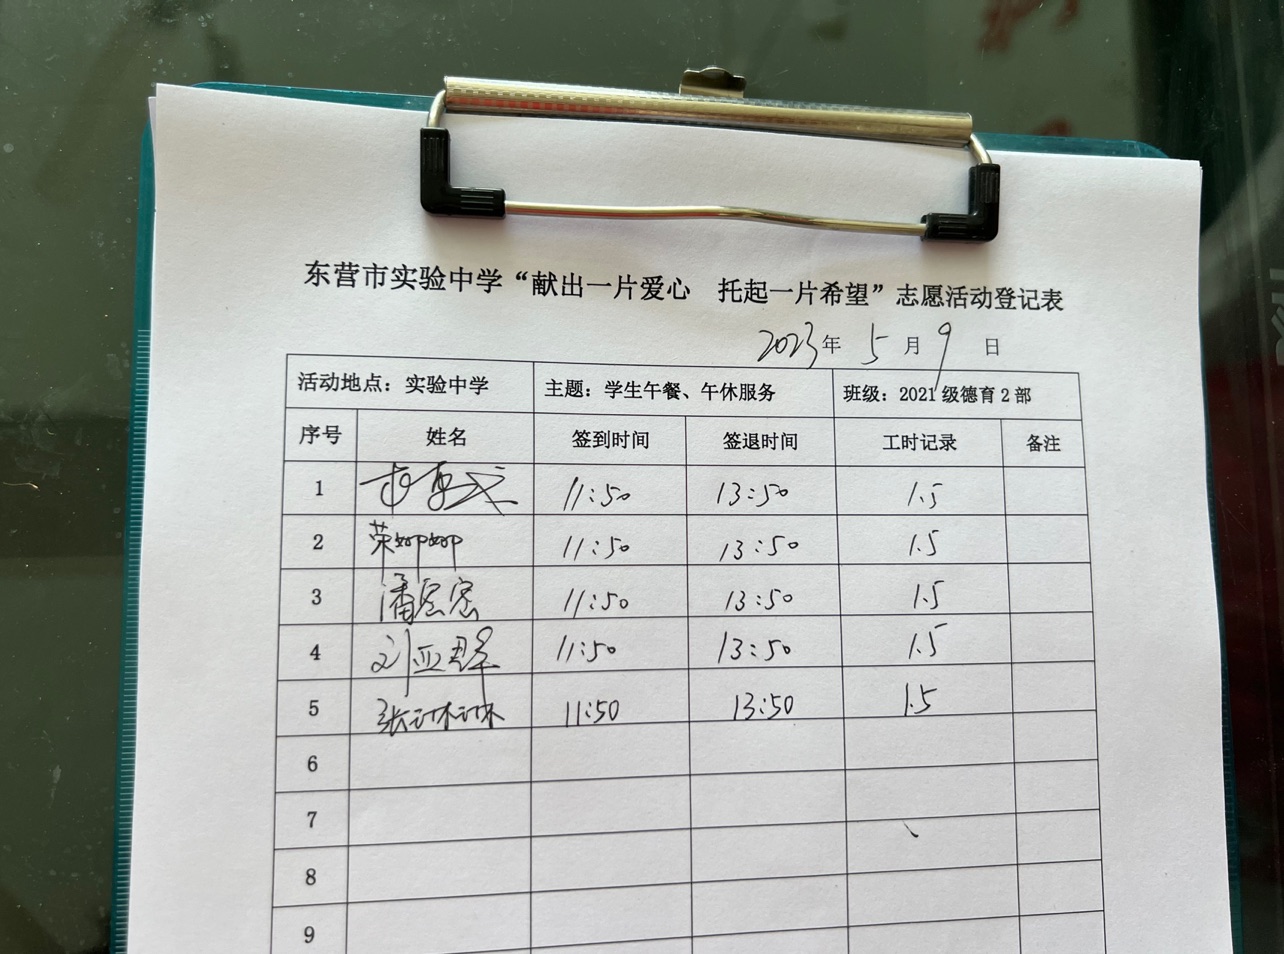 东营市实验中学“献出一片爱心 托起一片希望”志愿活动登记表
2023年 5月 9日
活动地点：实验中学 主题：学生午餐、午休服务 班级：2021级德育2部
序号 姓名 签到时间 签退时间 工时记录 备注
1 11:50 13:50 1.5
2 荣娜娜 11:50 13:50 1.5
3 潘宏宏 11:50 13:50 1.5
4 刘亚 11:50 13:50 1.5
5 张沭沭 11:50 13:50 1.5
6
7
8
9